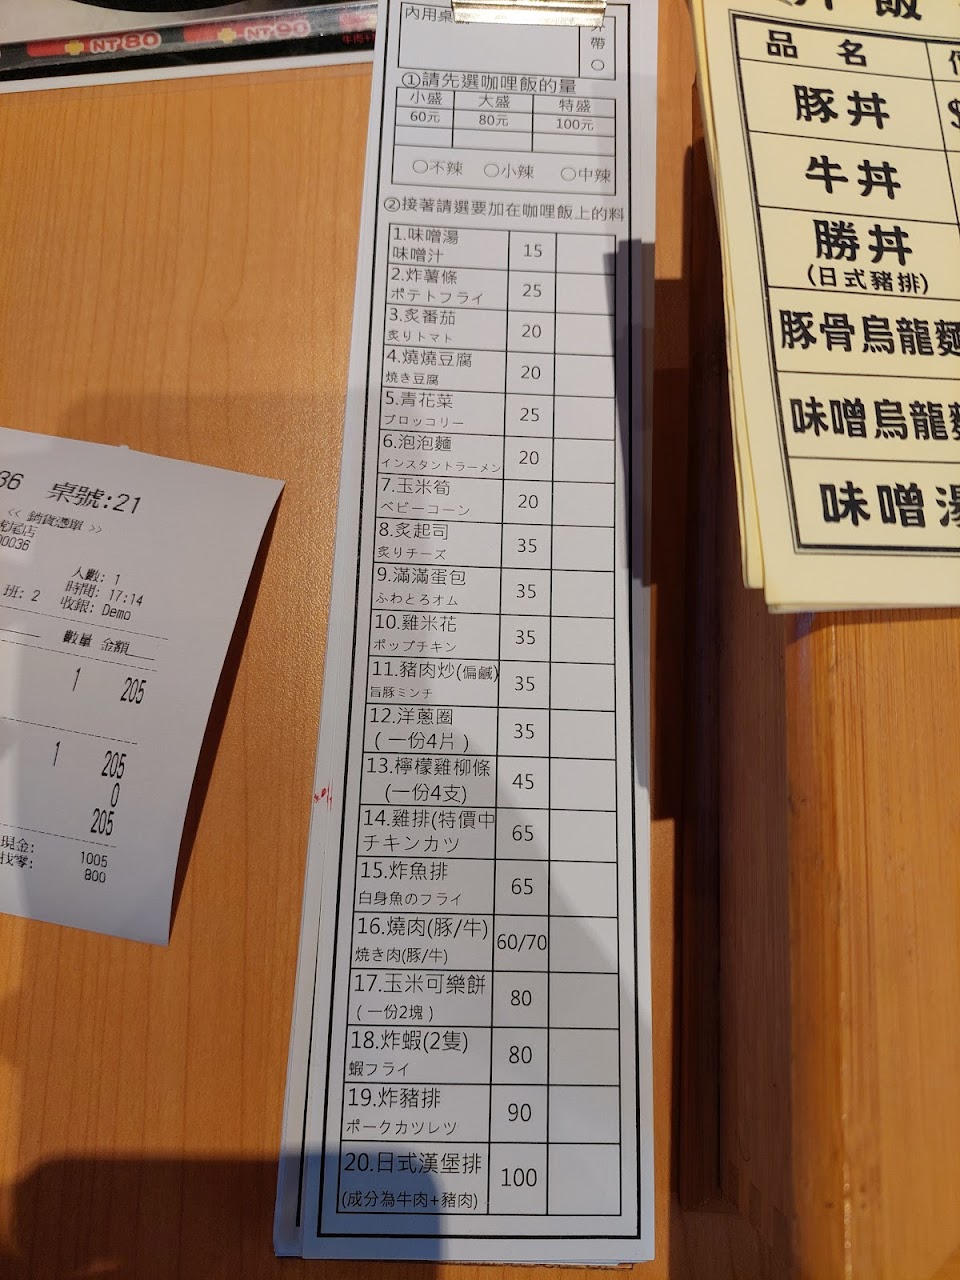 NT80
NT90
內用桌號
外帶○
①請先選咖哩飯的量
小盛 大盛 特盛
60元 80元 100元
○不辣 ○小辣 ○中辣
②接著請選要加在咖哩飯上的料
1.味噌湯 15
味噌汁
2.炸薯條 25
ポテトフライ
3.炙番茄 20
炙りトマト
4.燒燒豆腐 20
焼き豆腐
5.青花菜 25
ブロッコリー
6.泡泡麵 20
インスタントラーメン
7.玉米筍 20
ベビーコーン
8.炙起司 35
炙りチーズ
9.滿滿蛋包 35
ふわとろオム
10.雞米花 35
ポップチキン
11.豬肉炒(偏鹹) 35
旨豚ミンチ
12.洋蔥圈 35
(一份4片)
13.檸檬雞柳條 45
(一份4支)
14.雞排(特價中 65
チキンカツ
15.炸魚排 65
白身魚のフライ
16.燒肉(豚/牛) 60/70
焼き肉(豚/牛)
17.玉米可樂餅 80
(一份2塊)
18.炸蝦(2隻) 80
蝦フライ
19.炸豬排 90
ポークカツレツ
20.日式漢堡排 100
(成分為牛肉+豬肉)
36 桌號:21
<< 銷貨憑單 >>
虎尾店
00036
人數: 1
班: 2 時間: 17:14
收銀: Demo
數量 金額
1 205
1 205
0
205
現金: 1005
找零: 800
丼飯
品名
豚丼
牛丼
勝丼
(日式豬排)
豚骨烏龍麵
味噌烏龍麵
味噌湯